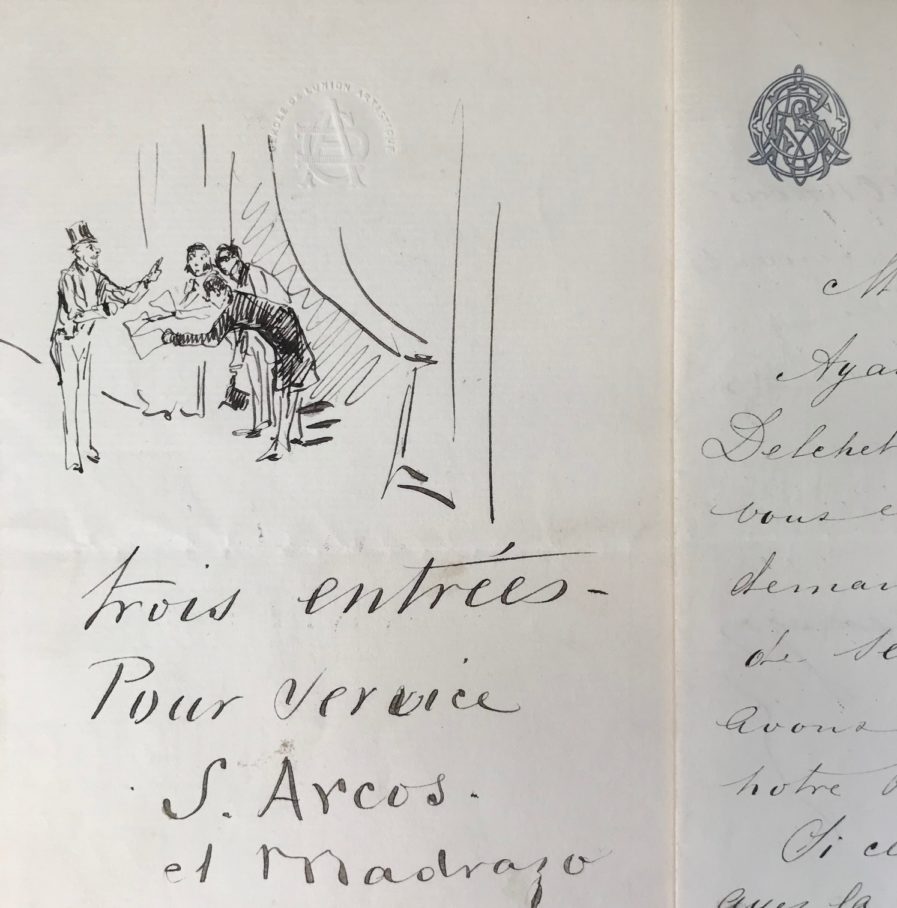 CERCLE DE L'UNION ARTISTIQUE
trois entrées -
Pour service
S. Arcos.
et Madrazo
M
Aya
Delchet
vous e
deman
de se
avons
notre
Si ce
avec la